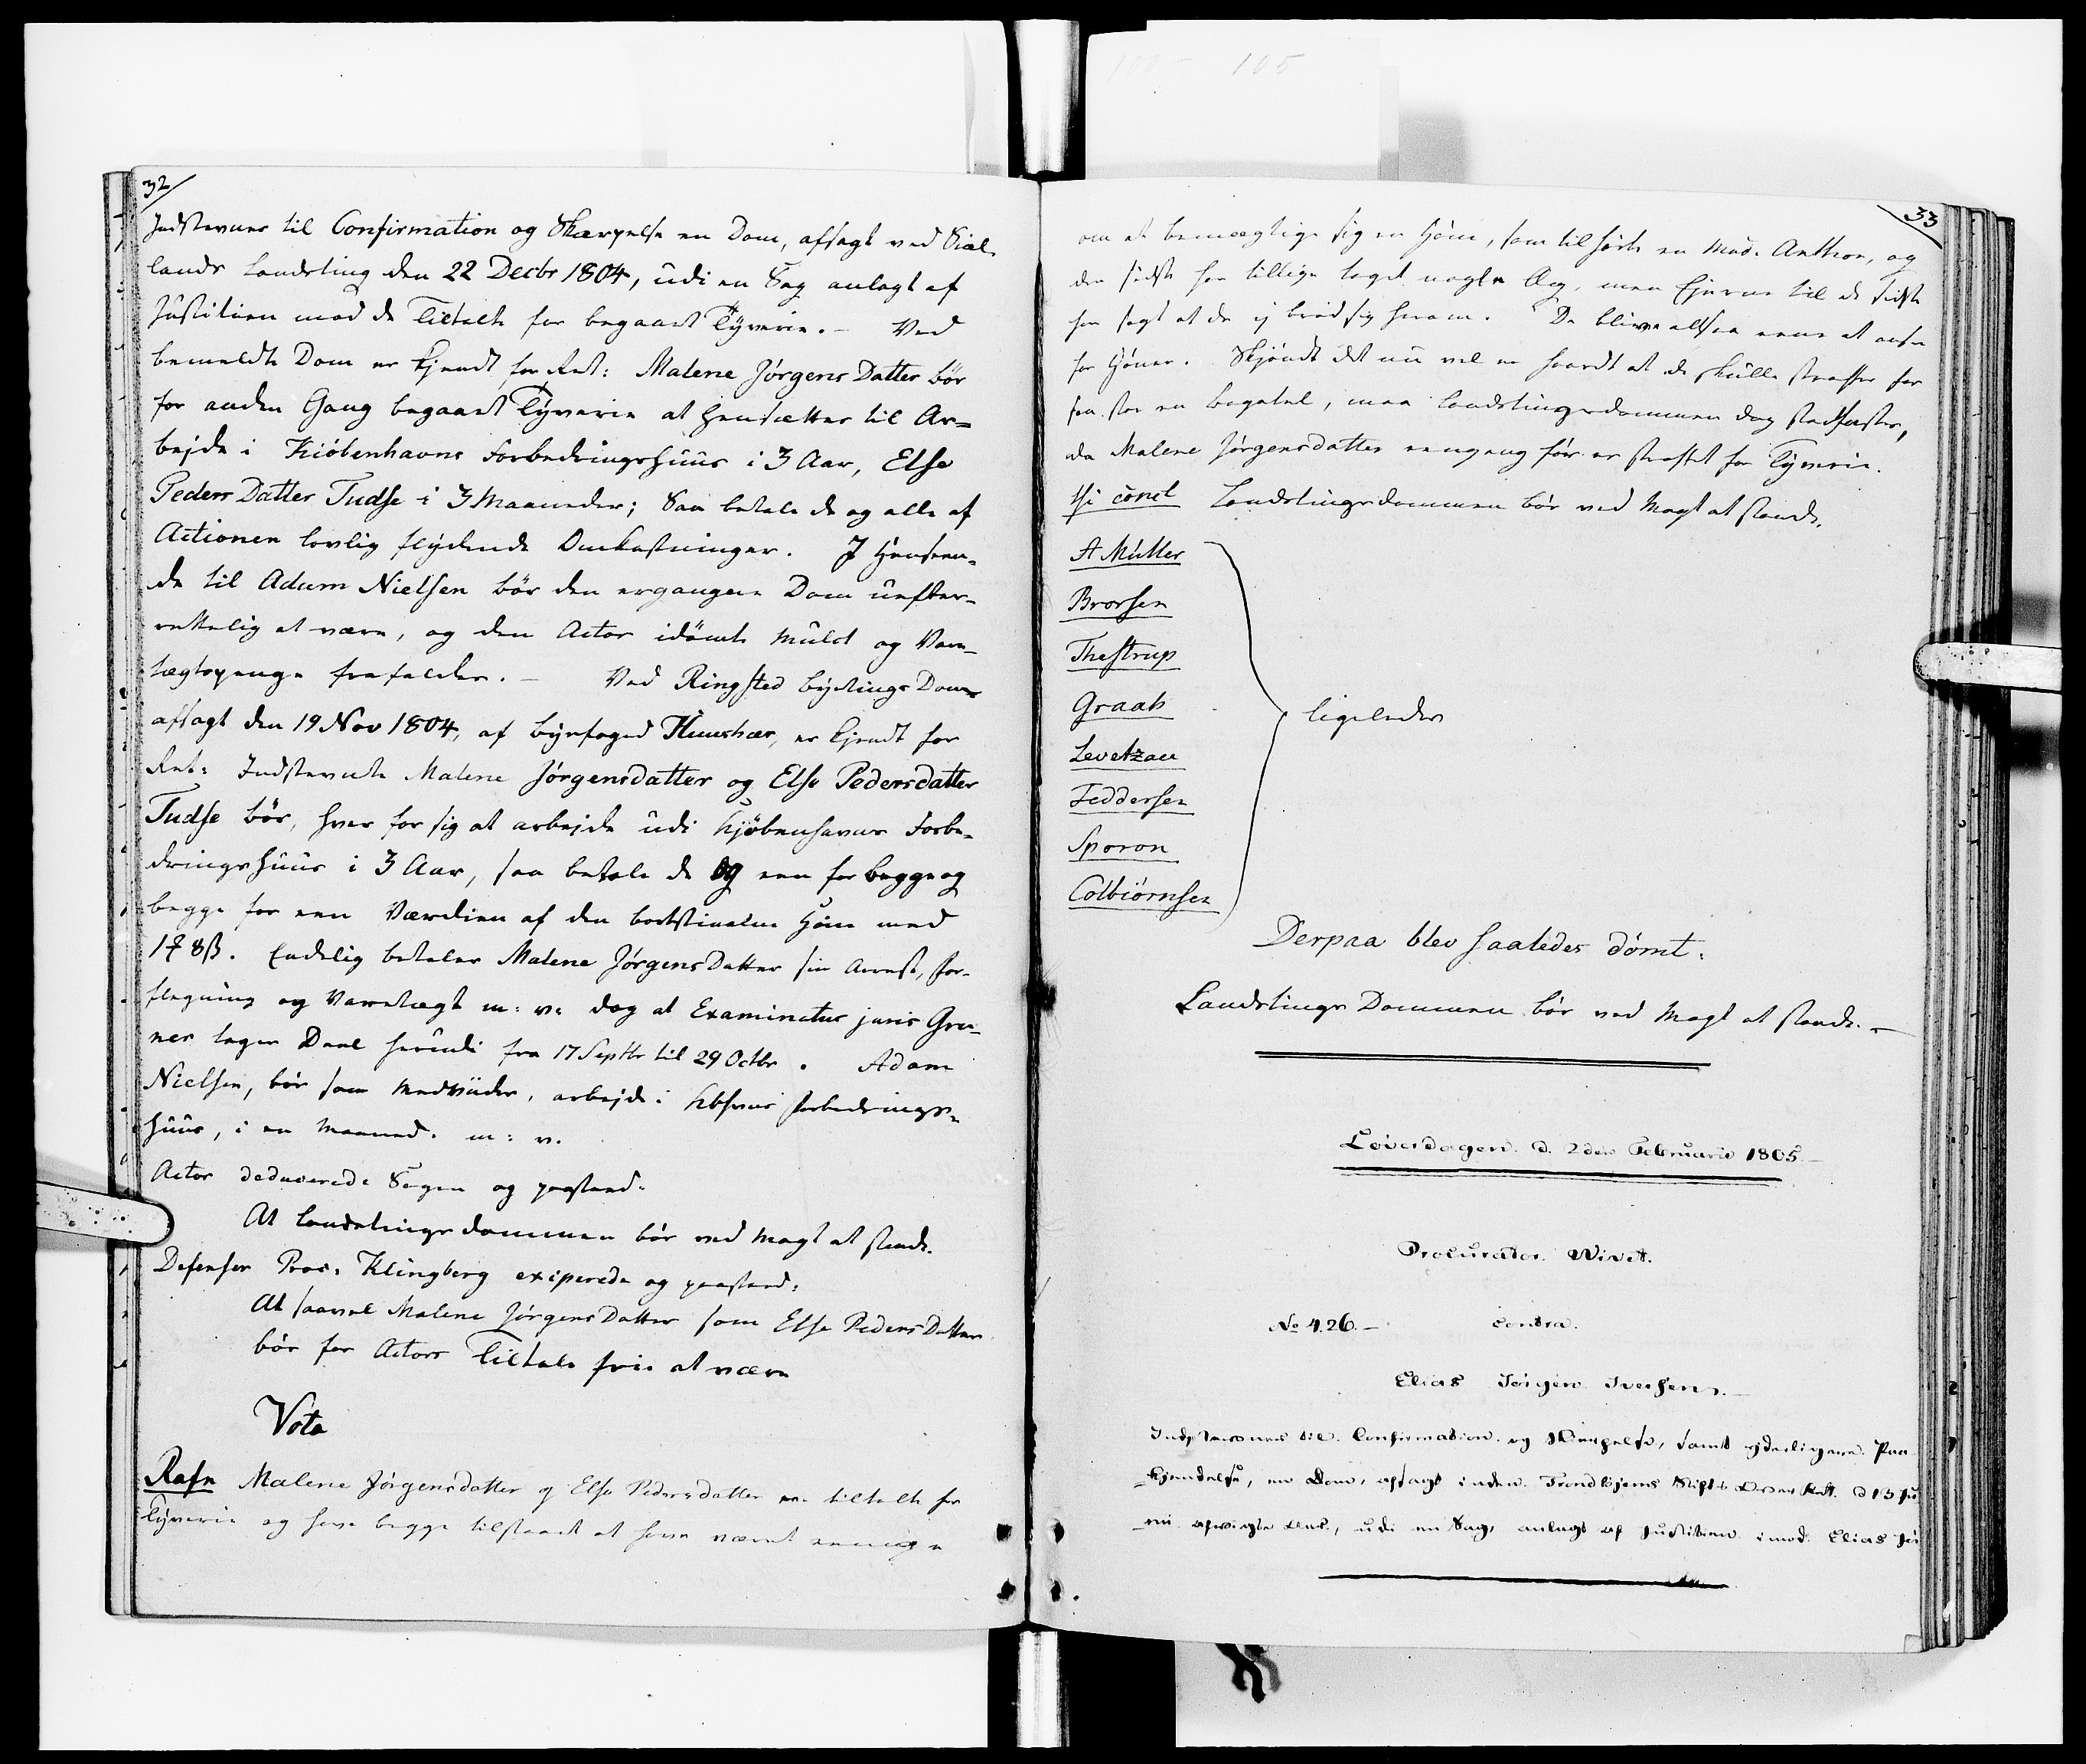 32
Indstevnes til Confirmation og Skærpelse en Dom, afsagt ved Siæl-
lands Landsting den 22 Decbr 1804, udi en Sag anlagt af
Justitien mod de Tiltalte for begaaet Tyverie. - Ved
bemeldte Dom er kjendt for Ret: Malene Jørgens Datter bør
for anden Gang begaaet Tyverie at hensættes til Ar=
bejde i Kiöbenhavns Forbedringshuus i 3 Aar, Else
Peders Datter Tudse i 3 Maaneder; Saa betale de og alle af
Actionen lovlig flydende Omkostninger. I Henseen-
de til Adam Nielsen bør den ergangne Dom uefter-
rettelig at være, og den Actor idömte Mulct og Vare-
tægtspenge frafalder. - Ved Ringsted Bytings Dom
afsagt den 19 Nov 1804, af Byefoged er kjendt for
Ret: Indstevnte Malene Jørgensdatter og Else Pedersdatter
Tudse bør, hver for sig at arbejde udi Kjøbenhavns Forbe-
dringshuus i 3 Aar, saa betale de og een for begge og
begge for een Værdien af den bortstiaalne Høne med
1 8 ß. Endelig betaler Malene Jørgens Datter sin Arrest, For-
flegning og Varetægt m: v: dog at Examinatus juris Gru-
ner tager Deel herudi fra 17 Septbr til 29 Octbr. Adam
Nielsen, bør som Medvider, arbejde i Kbhvns Forbedrings-
huus, i en Maaned. m: v.
Actor deducerede Sagen og paastod:
At Landstingsdommen bør ved Magt at stande.
Defensor Proc: Klingberg exiperede og paastod:
At saavel Malene Jørgens Datter som Else Peders Datter
bør for Actors Tiltale frie at være
Vota
Rafn Malene Jørgensdatter og Else Pedersdatter ere tiltalte for
Tyverie og have begge tilstaaet at have været eenige
33
om at bemægtige sig en Høne, som tilhørte en Mad. Anthon, og
den sidste har tillige taget nogle Æg, men Ejeren til de sidste
har sagt at de ej brød sig herom. De blive altsaa eene at ansee
for Hönen. Skjöndt det nu vel er haardt at de skulle straffes for
saa stor en Bagatel, maa Landstingsdommen dog stadfæstes,
da Malene Jørgensdatter eengang før er straffet for Tyverie.
thi concl Landstingsdommen bör ved Magt at stande.
A Müller
Brorsen
Thestrup
Graah
ligeledes
Levetzau
Feddersen
Sporon
Colbiörnsen
Derpaa blev saaledes dömt.
Landstings Dommen bör ved Magt at stande. -
Löverdagen d. 2den Februarii 1805. -
Procurator Wivet.
No 426. - contra.
Elias Jörgen Iversen. -
Indstevnes til Confirmation og Skærpelse, samt yderligere Paa-
kjendelse, en Dom, afsagt inden Trondhjems Stifts Overret. d 13 Ju-
nii afvigte Aar, udi en Sag, anlagt af Justitien imod Elias Jör